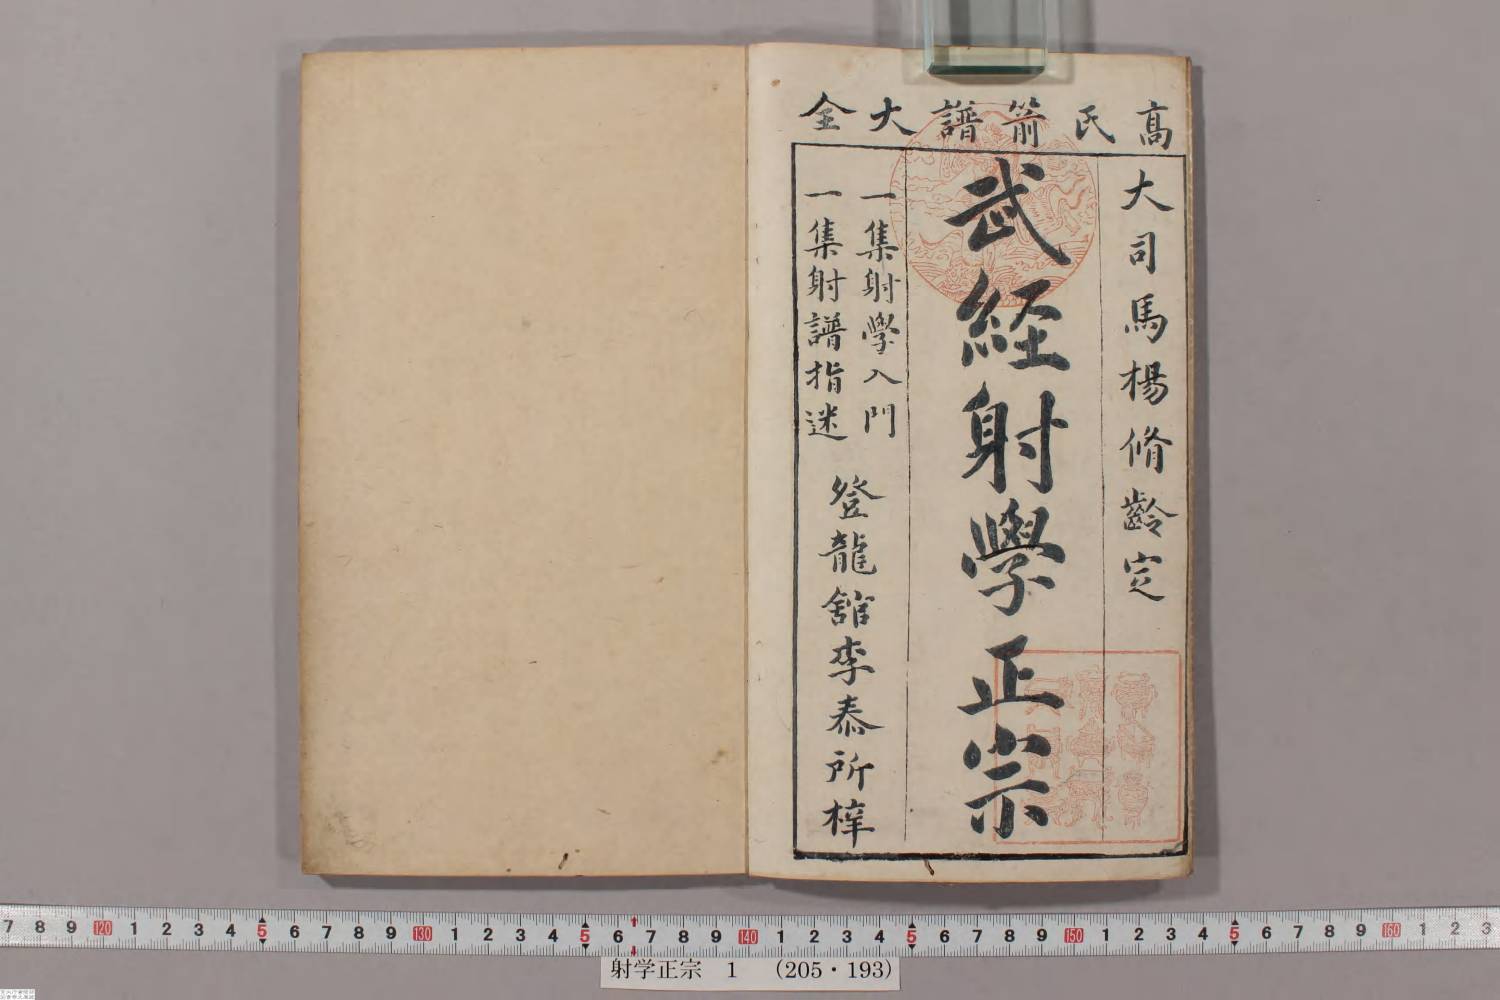 高氏箭譜大全
大司馬楊脩齡定
武経射學正宗
一集射學入門
一集射譜指迷
登龍舘李泰所梓
7 8 9 120 1 2 3 4 5 6 7 8 9 130 1 2 3 4 5 6 7 8 9 140 1 2 3 4 5 6 7 8 9 150 1 2 3 4 5 6 7 8 9 160 1 2 3
射学正宗 1 （205・193）